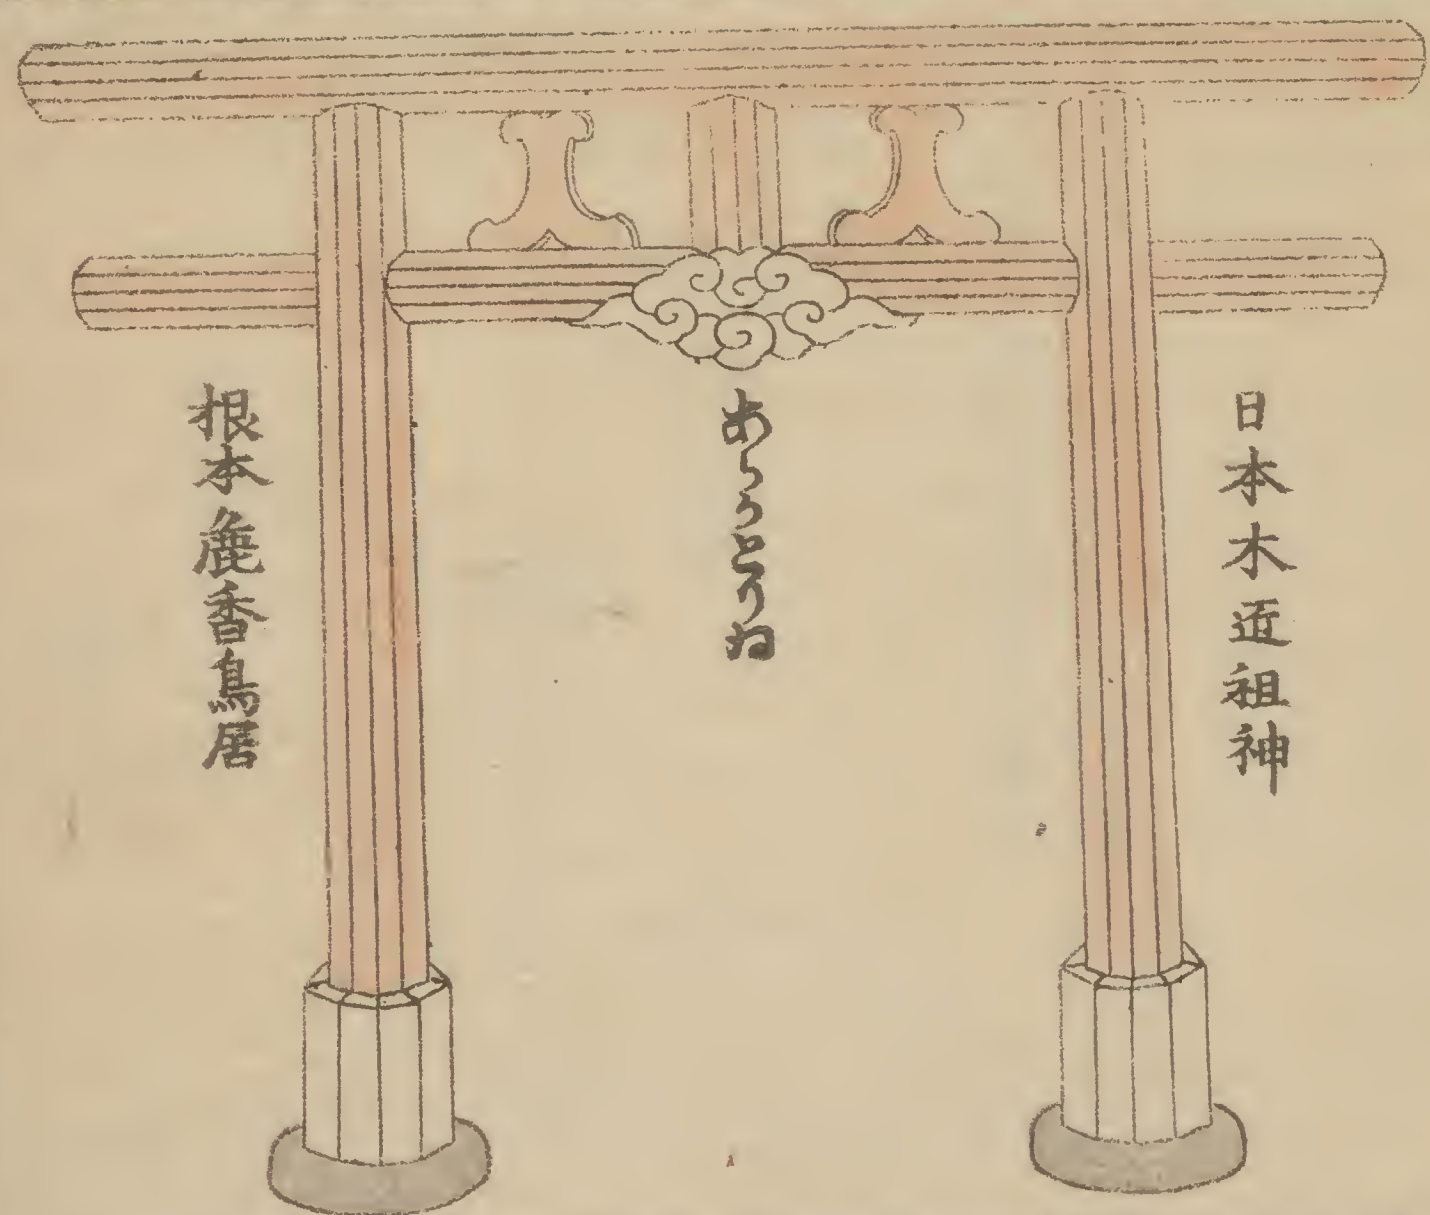 日本木匠祖神
あらかとりゐ
根本麁香鳥居